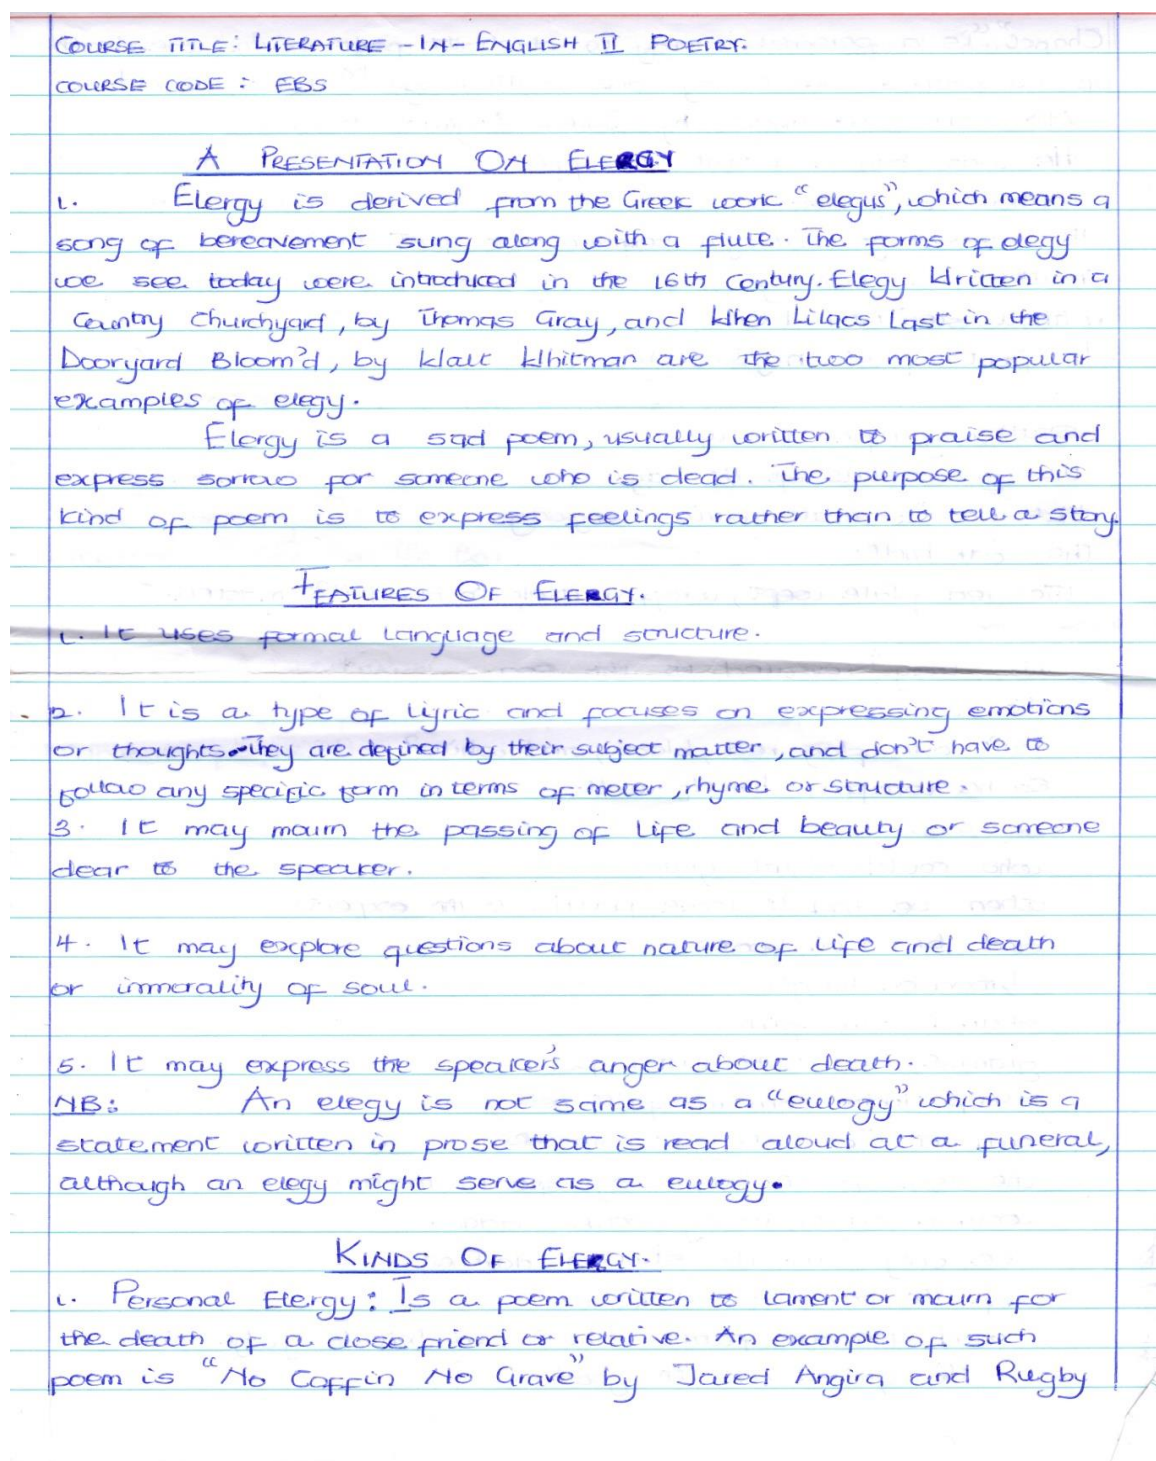 COURSE TITLE: LITERATURE -IN- ENGLISH II POETRY.
COURSE CODE: EBS
A PRESENTATION ON ELERGY
1. Elergy is derived from the Greek work "elegus", which means a
song of bereavement sung along with a flute. The forms of elegy
we see today were introduced in the 16th Century. Elegy Written in a
Country Churchyard, by Thomas Gray, and When Lilacs Last in the
Dooryard Bloom'd, by Walt Whitman are the two most popular
examples of elegy.
Elergy is a sad poem, usually written to praise and
express sorrow for someone who is dead. The purpose of this
kind of poem is to express feelings rather than to tell a story.
FEATURES OF ELERGY.
1. It uses formal language and structure.
2. It is a type of lyric and focuses on expressing emotions
or thoughts. They are defined by their subject matter, and don't have to
follow any specific form in terms of meter, rhyme or structure.
3. It may mourn the passing of life and beauty or someone
dear to the speaker.
4. It may explore questions about nature of life and death
or immorality of soul.
5. It may express the speaker's anger about death.
NB: An elegy is not same as a "eulogy" which is a
statement written in prose that is read aloud at a funeral,
although an elegy might serve as a eulogy.
KINDS OF ELERGY.
1. Personal Elergy: Is a poem written to lament or mourn for
the death of a close friend or relative. An example of such
poem is "No Coffin No Grave" by Jared Angira and Rugby